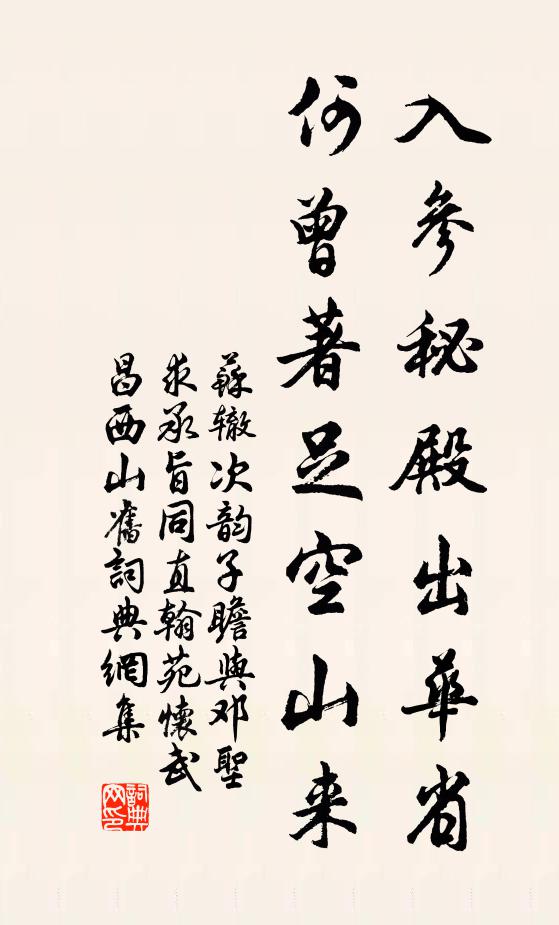 入參秘殿出華省
何曾著足空山来
蘇辙次韵子瞻與邓聖
求承旨同直翰苑懷武
昌西山舊詞典網集
詞典网印